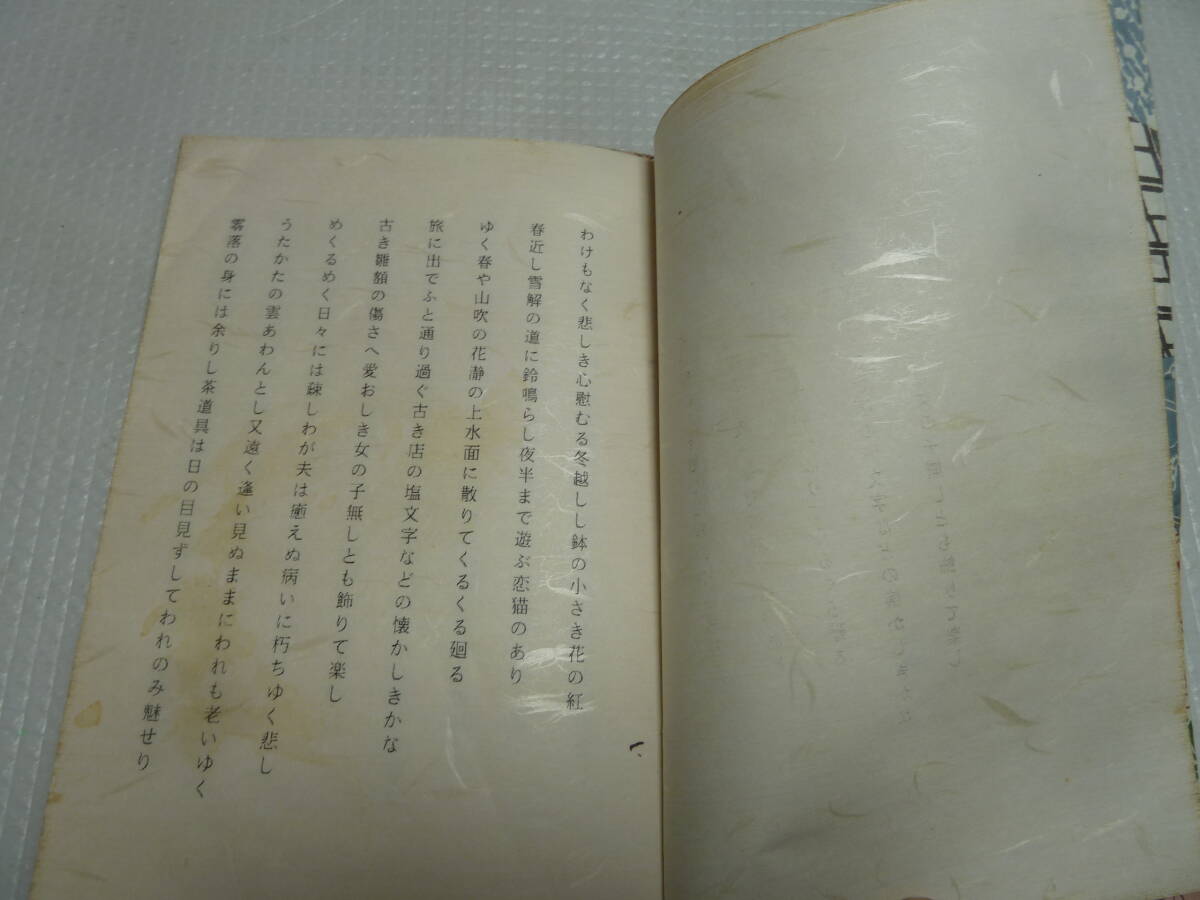 わけもなく悲しき心慰むる冬越しし鉢の小さき花の紅
春近し雪解の道に鈴鳴らし夜半まで遊ぶ恋猫のあり
ゆく春や山吹の花瀞の上水面に散りてくるくる廻る
旅に出でふと通り過ぐ古き店の塩文字などの懐かしきかな
古き雛額の傷さへ愛おしき女の子無しとも飾りて楽し
めくるめく日々には疎しわが夫は癒えぬ病いに朽ちゆく悲し
うたかたの雲あわんとし又遠く逢い見ぬままにわれも老いゆく
零落の身には余りし茶道具は日の目見ずしてわれのみ魅せり